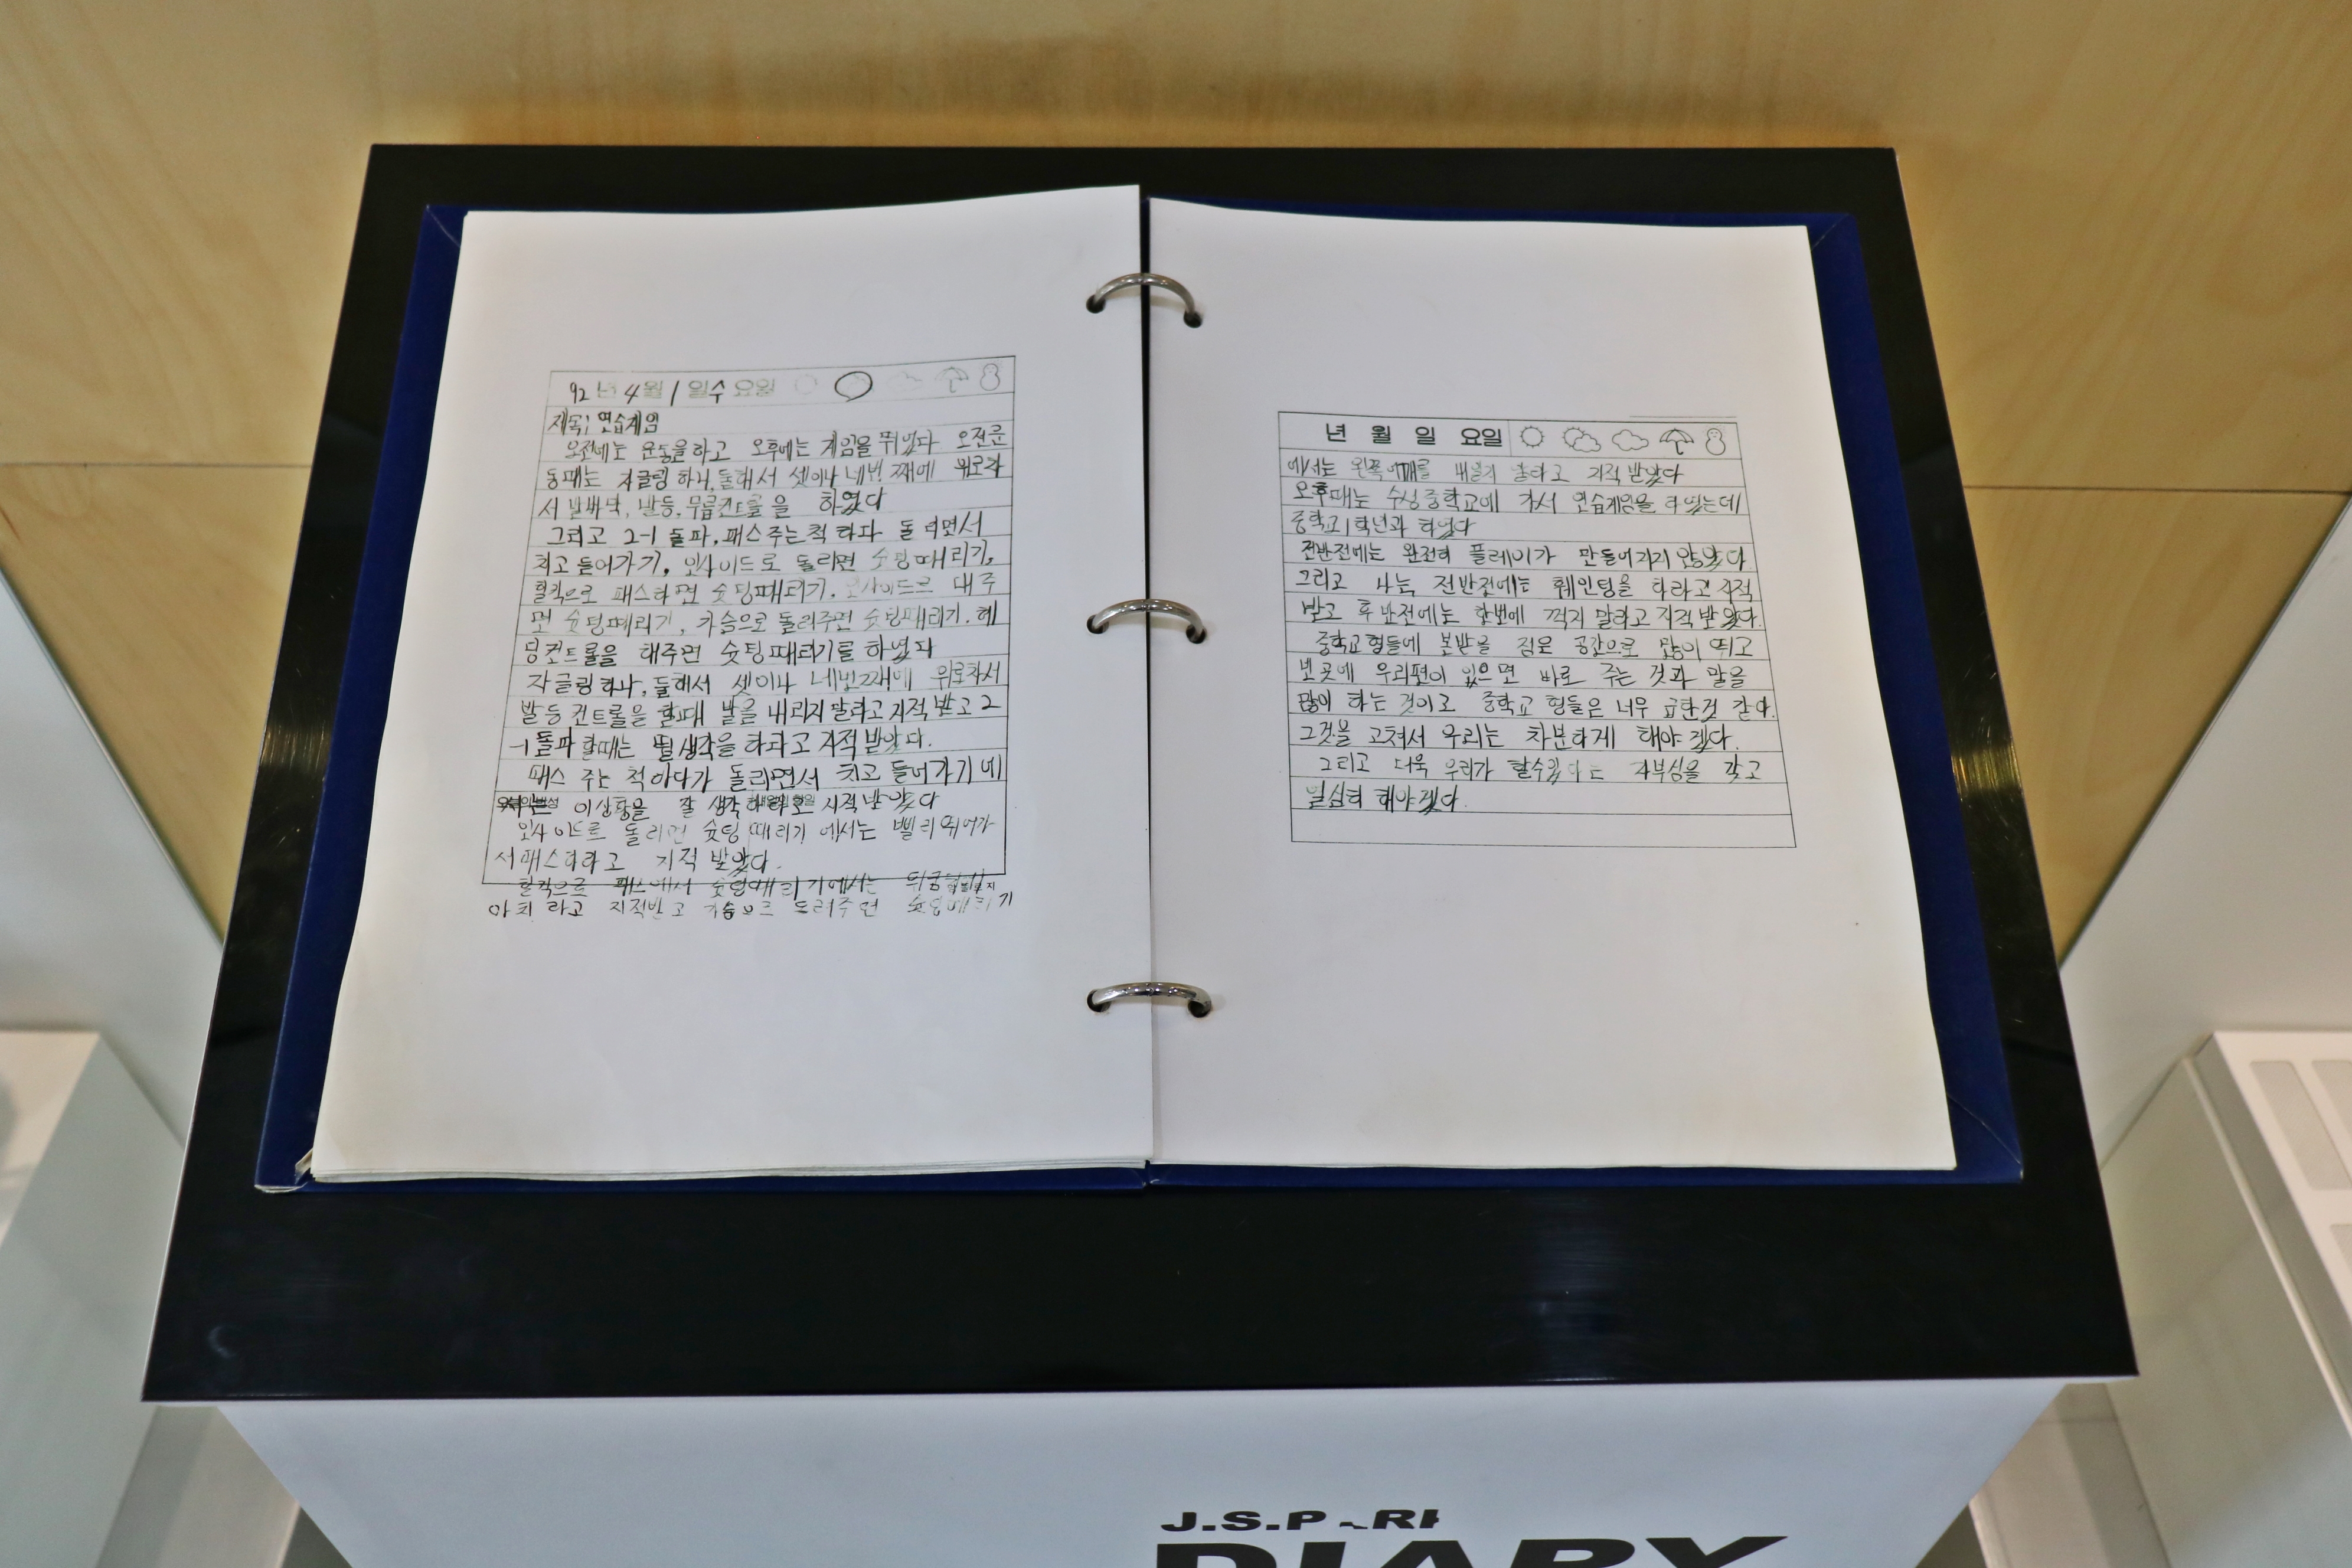 92년 4월 1일 수요일
제목: 연습게임
오전에는 운동을하고 오후에는 게임을 뛰었다 오전운
동때는 자글링 하나, 둘해서 셋이나 네번째에 위로차
서 발바닥, 발등, 무릎컨트롤을 하였다
그리고 2-1 돌파, 패스주는척 하다 돌리면서
치고 들어가기, 인사이드로 돌리면 슛팅때리기,
힐킥으로 패스하면 슛팅때리기. 인사이드로 대주
면 슛팅때리기, 가슴으로 돌려주면 슛팅때리기. 헤
딩컨트롤을 해주면 슛팅때리기를 하였다
자글링하나, 둘해서 셋이나 네번째에 위로차서
발등 컨트롤을 할때 발을 내리지말라고 지적 받고 2
-1 돌파 할때는 띌생각을 하라고 지적 받았다.
패스 주는 척 하다가 돌리면서 치고 들어가기에
이상황을 잘 생각 하라고 지적 받았다
인사이드로 돌리면 슛팅 때리기 에서는 빨리 뛰어가
서패스하라고 지적 받았다.
힐킥으로 패스에서 슛팅때리기에서는
라고 지적받고 가슴으로 돌려주면 슛팅때리기
년 월 일 요일
에서는 왼쪽어깨를 내밀지 말라고 지적 받았다
오후때는 수성중학교에 가서 연습게임을 하였는데
중학교1학년과 하였다
전반전에는 완전히 플레이가 만들어지지 않았다.
그리고 나는 전반전에는 훼인팅을 하라고 지적
받고 후반전에는 한번에 꺽지 말라고 지적 받았다.
중학교형들에 본받을 점은 공간으로 많이 뛰고
빈곳에 우리편이 있으면 바로 주는 것과 말을
많이 하는 것이고 중학교 형들은 너무 급한것 같다.
그것을 고쳐서 우리는 차분하게 해야 겠다.
그리고 더욱 우리가 할수있다는 자부심을 갖고
열심히 해야겠다.
J.S.PARK
DIARY